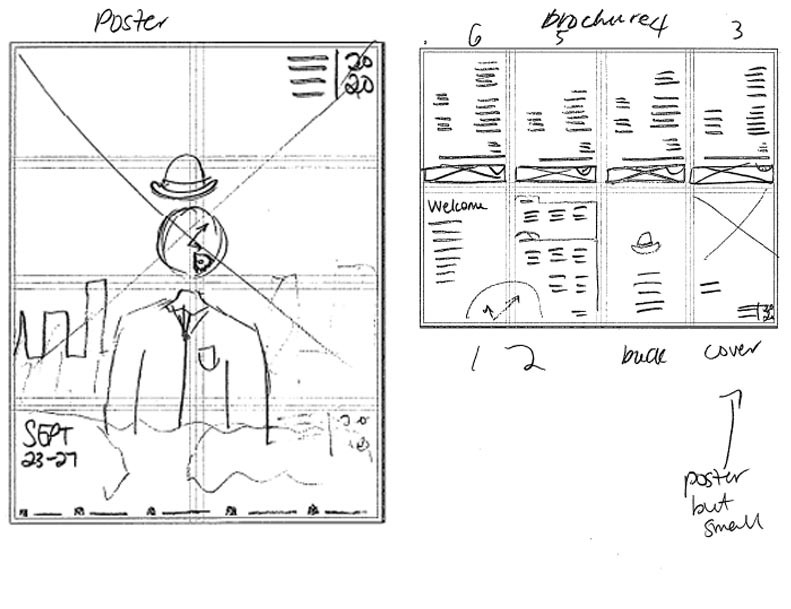 Poster
20
20
SEPT
23-27
Brochure
6 5 4 3
Welcome
1 2 back cover
poster
but
small